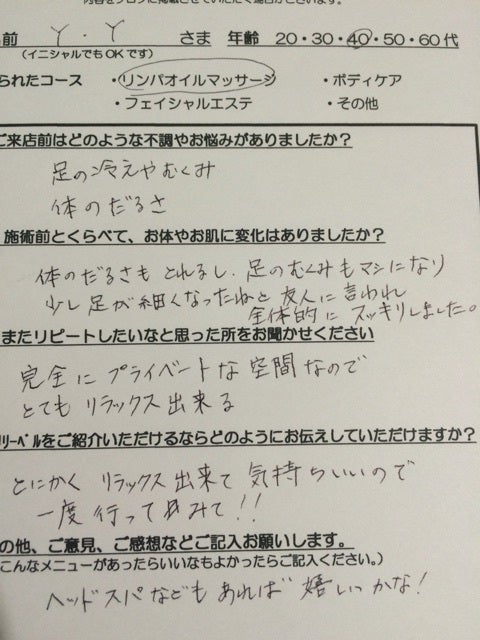 内容をブログに掲載させていただく場合がございます。
名前 Y・Y さま 年齢 20・30・40・50・60代
(イニシャルでもOKです)
られたコース ・リンパオイルマッサージ ・ボディケア
・フェイシャルエステ ・その他
ご来店前はどのような不調やお悩みがありましたか?
足の冷えやむくみ
体のだるさ
施術前とくらべて、お体やお肌に変化はありましたか?
体のだるさもとれるし、足のむくみもマシになり
少し足が細くなったねと友人に言われ
全体的にスッキリしました。
またリピートしたいなと思った所をお聞かせください
完全にプライベートな空間なので
とてもリラックス出来る
リーベルをご紹介いただけるならどのようにお伝えしていただけますか?
とにかくリラックス出来て気持ちいいので
一度行ってみて!!
の他、ご意見、ご感想などご記入お願いします。
こんなメニューがあったらいいなもよかったらご記入ください。)
ヘッドスパなどもあれば嬉しいかな!